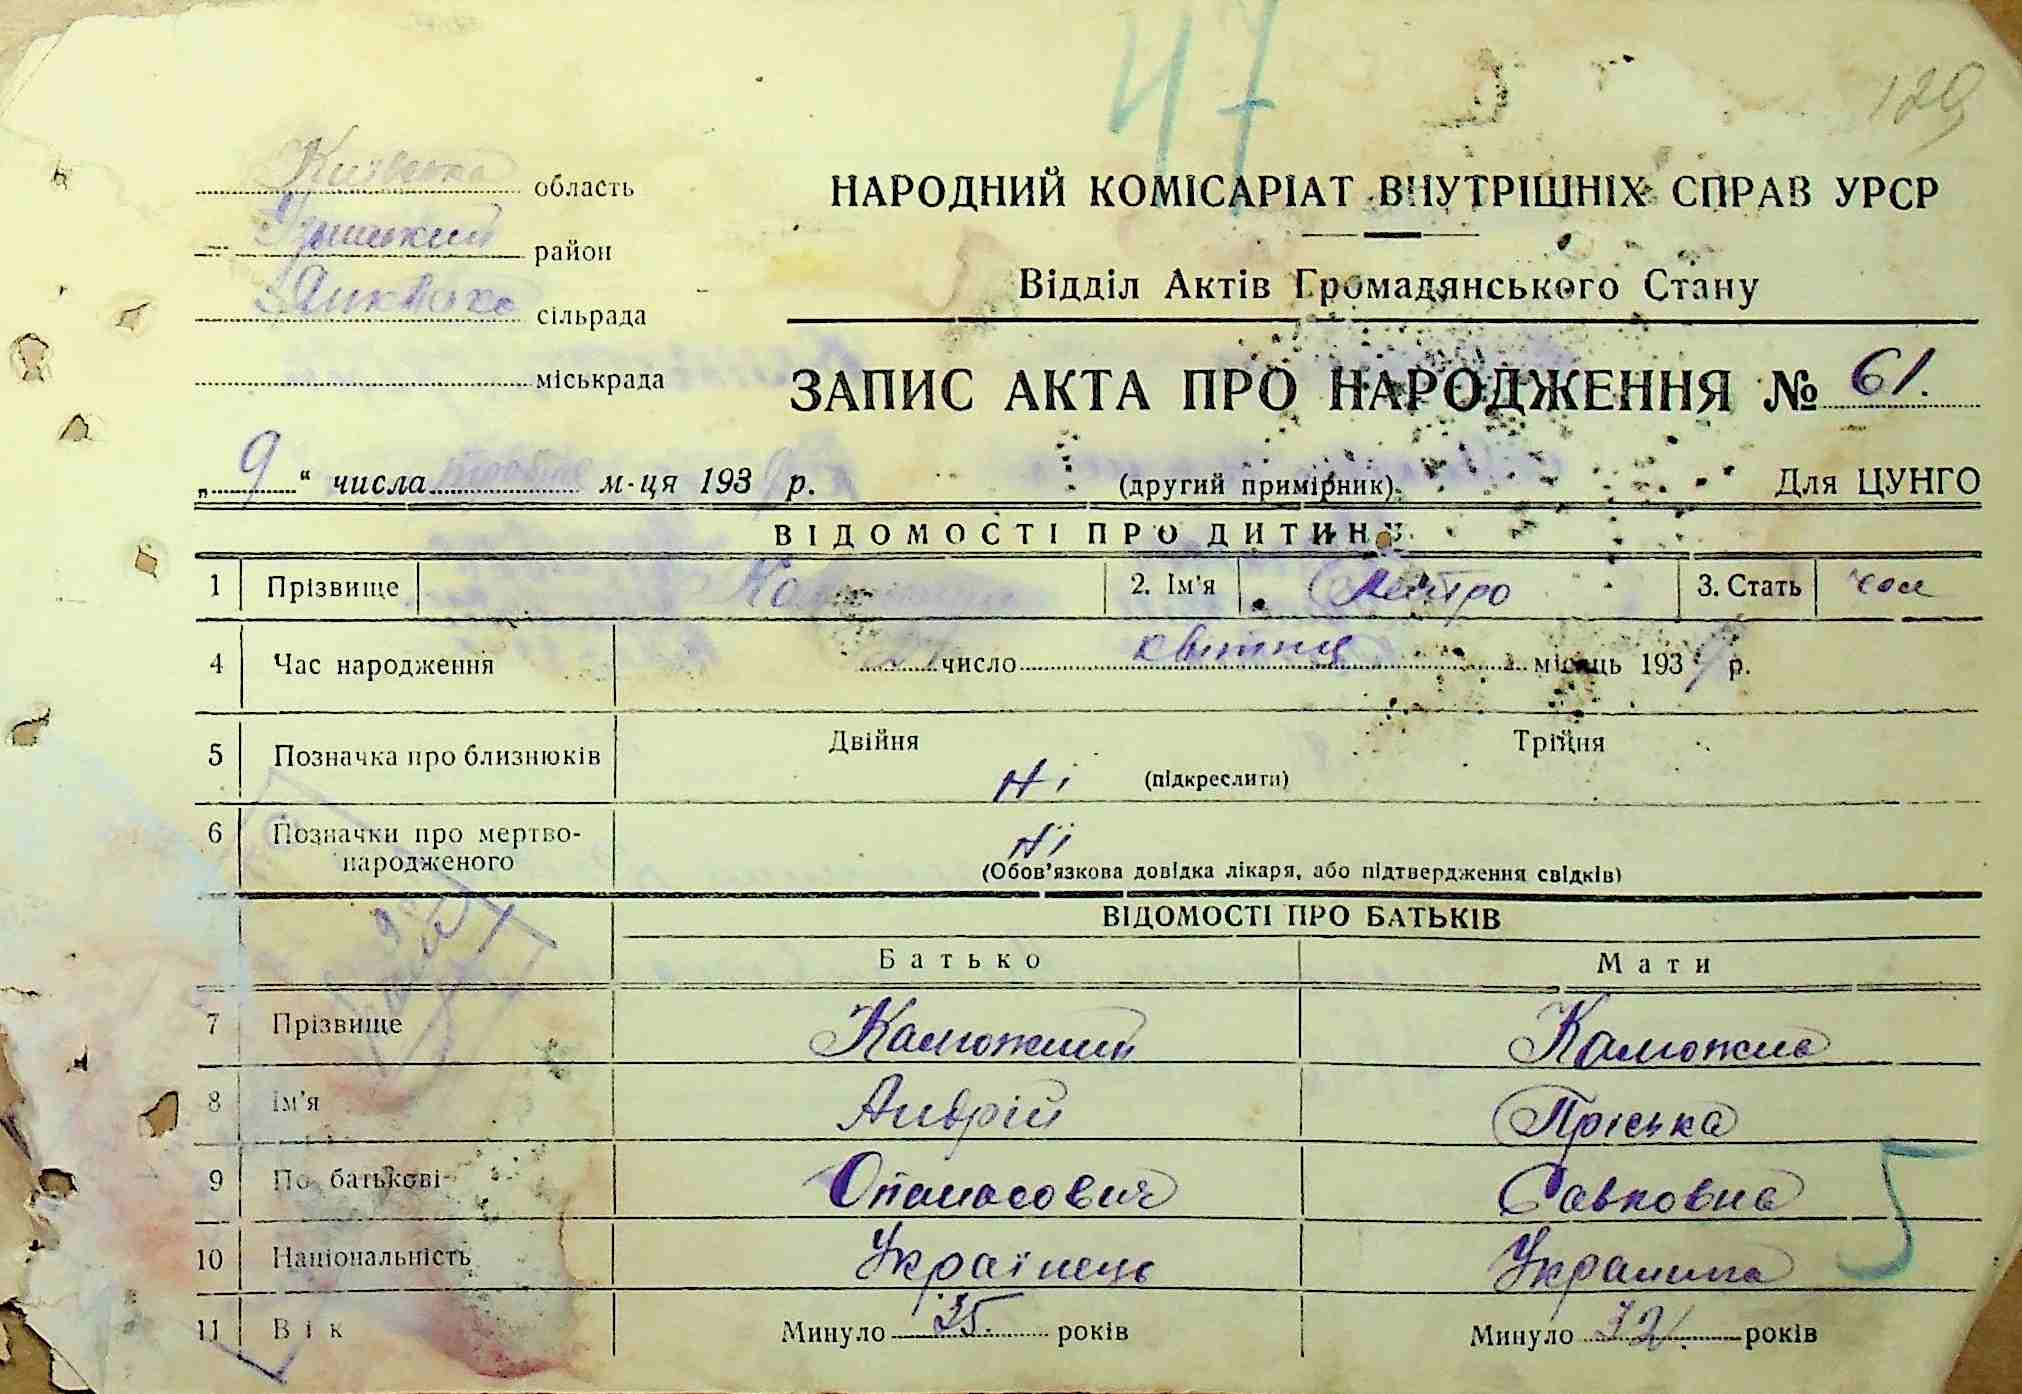 47
129
Київська область
район
сільрада
міськрада
НАРОДНИЙ КОМІСАРІАТ ВНУТРІШНІХ СПРАВ УРСР
Відділ Актів Громадянського Стану
ЗАПИС АКТА ПРО НАРОДЖЕННЯ № 61.
„ 9 “ числа м-ця 1939 р. (другий примірник). Для ЦУНГО
ВІДОМОСТІ ПРО ДИТИНУ
1 Прізвище 2. Ім'я Дмитро 3. Стать чол
4 Час народження число квітня місяць 1939 р.
5 Позначка про близнюків Двійня Трійня
Ні (підкреслити)
6 Позначки про мертво-
народженого Ні
(Обов'язкова довідка лікаря, або підтвердження свідків)
ВІДОМОСТІ ПРО БАТЬКІВ
Батько Мати
7 Прізвище Калюжний Калюжна
8 Ім'я Андрій Пріська
9 По батькові Опанасович Савковна
10 Національність Українець Украинка
11 Вік Минуло 35. років Минуло 32. років
5